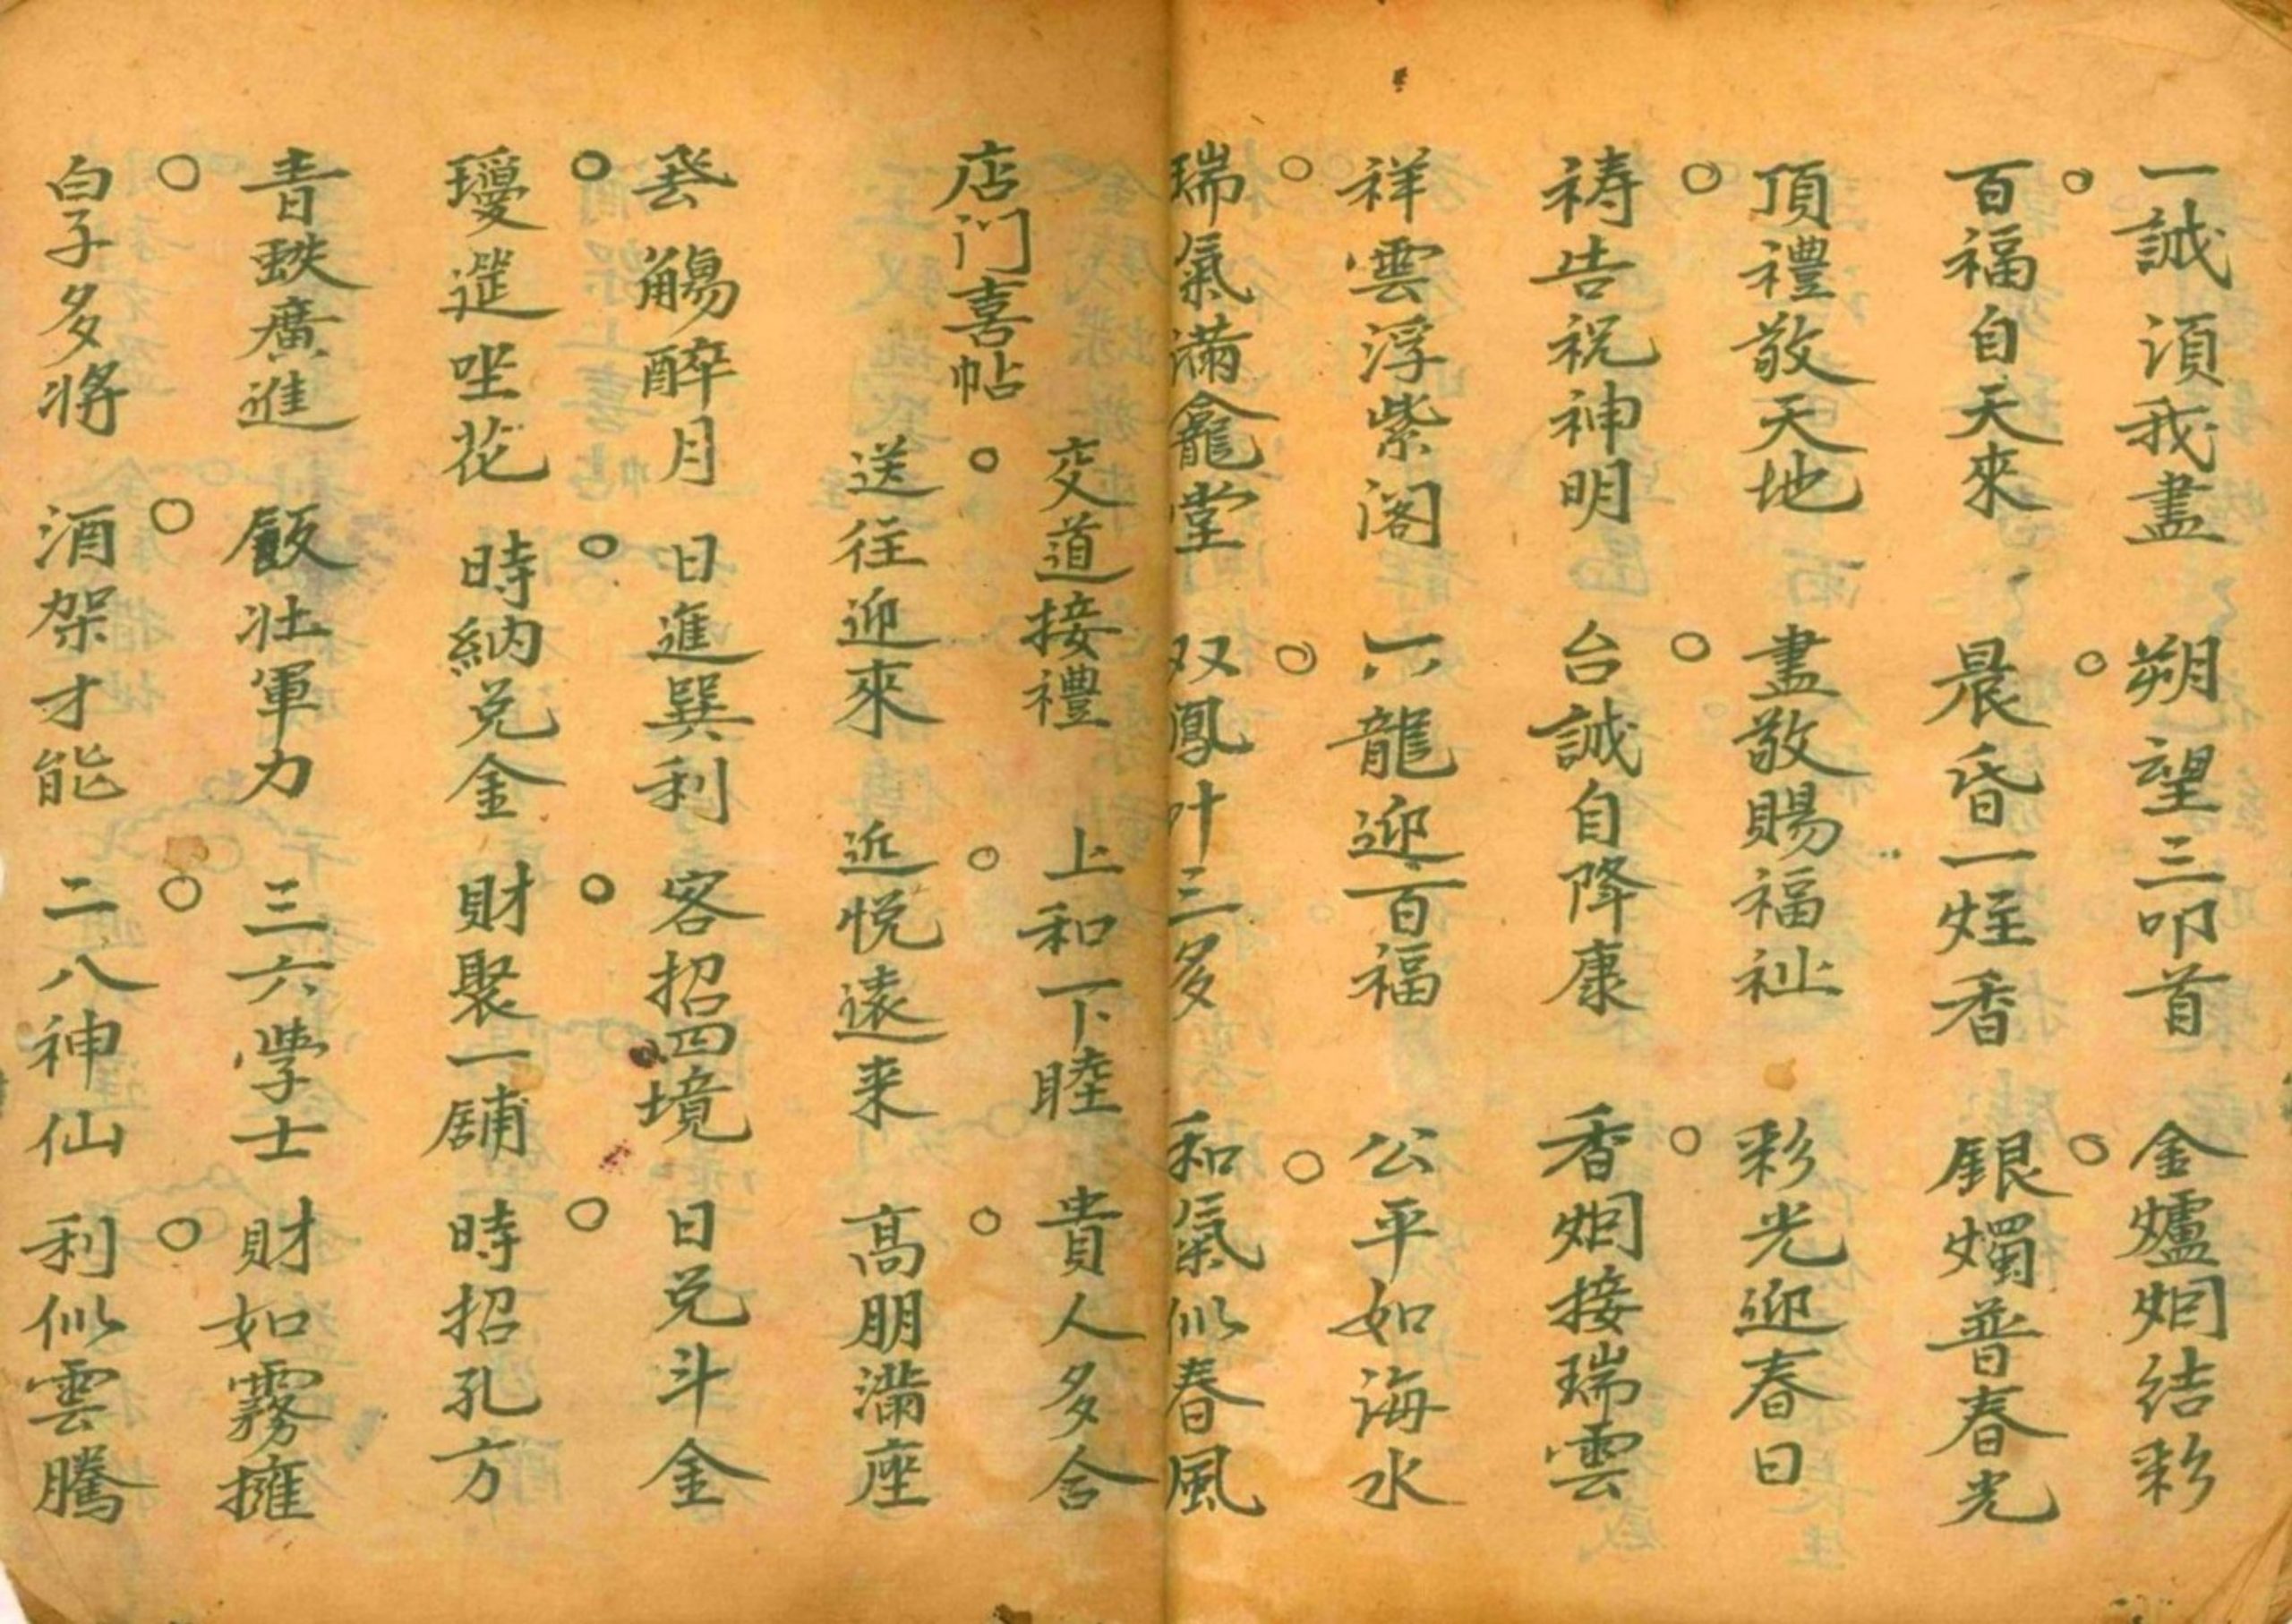 一誠湏我盡 朔望三叩首 金爐烟結彩
百福自天來 晨昏一炷香 銀燭普春光
頂禮敬天地 盡敬賜福祉 彩光迎春日
祷告祝神明 台誠自降康 香烟接瑞雲
祥雲浮紫阁 六龍迎百福 公平如海水
瑞氣滿龕堂 双鳳叶三多 和氣似春風
店门喜帖
交道接禮 上和下睦 貴人多舎
送往迎來 近悦遠来 高朋滿座
癸觴醉月 日進巽利 客招四境 日兑斗金
瓊筵坐花 時納兑金 財聚一舖 時招孔方
青蚨廣進 飯壮軍力 三六學士 財如霧擁
白子多将 酒架才能 二八神仙 利似雲騰